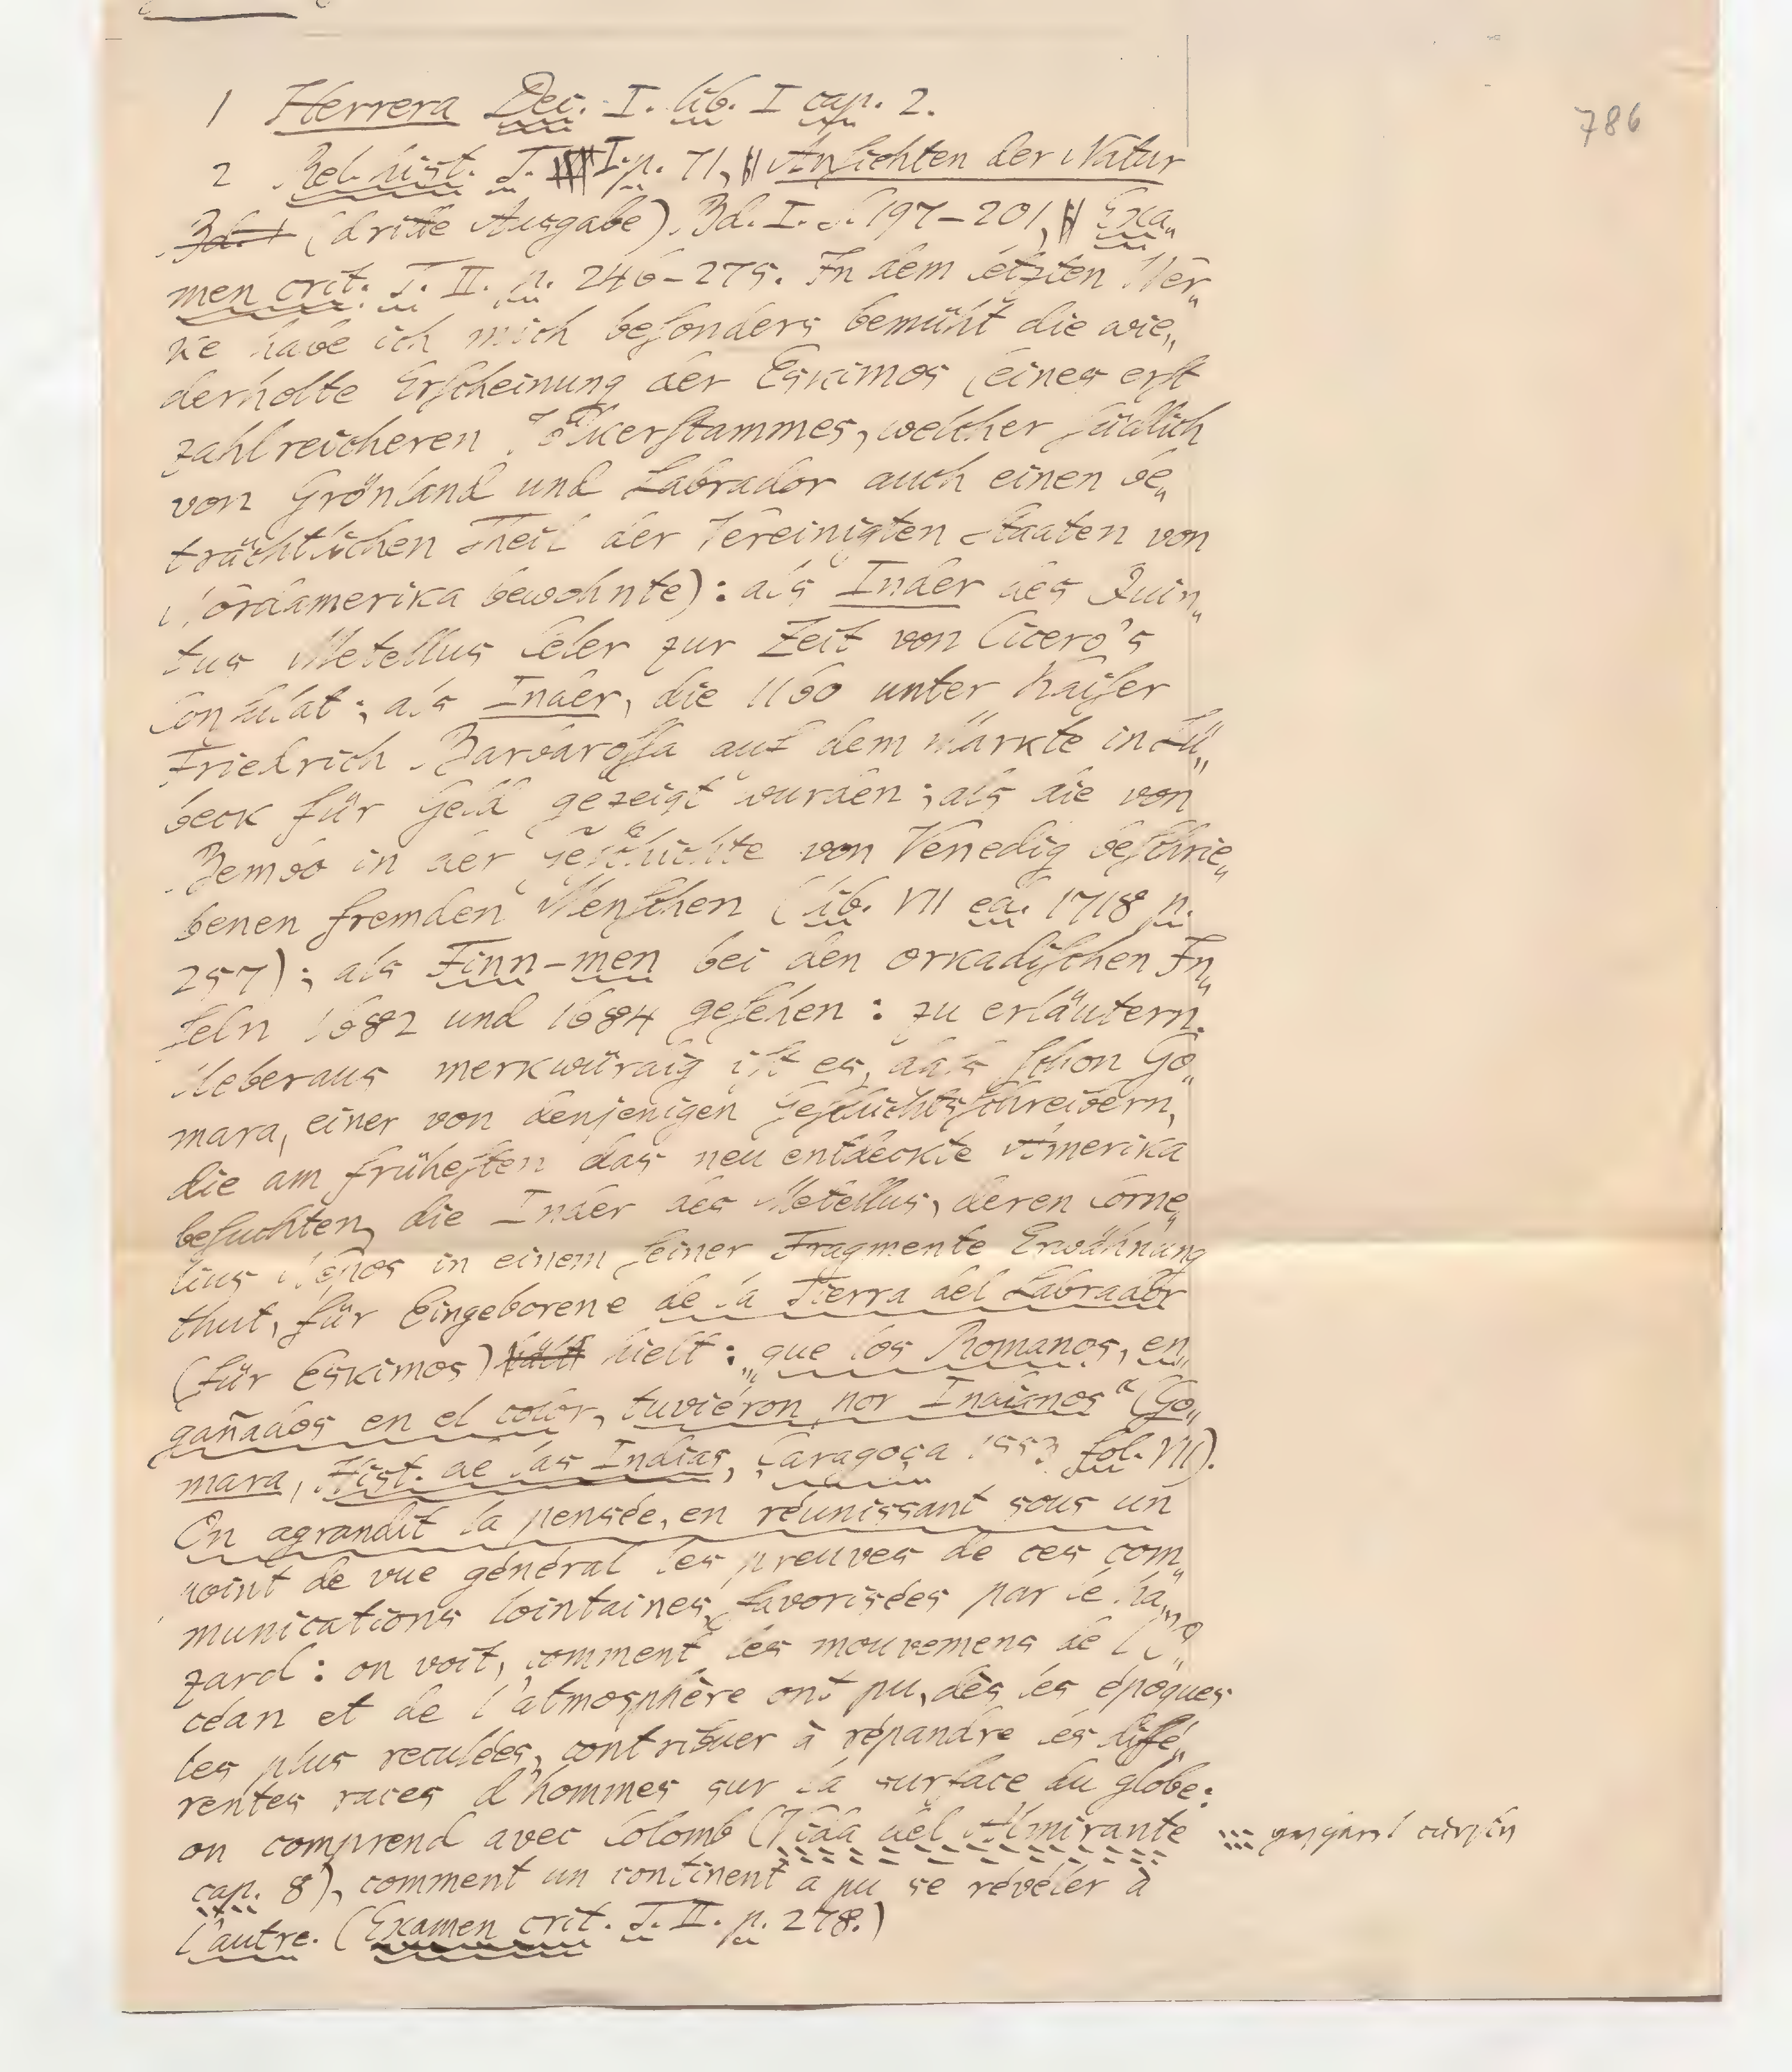 786
1 Herrera Dec. I. lib. I cap. 2.
2 Rel. hist. T. I. p. 71, Ansichten der Natur
Bd. I (dritte Ausgabe) Bd. I. S. 197–201, Exa„
men crit. T. II. p. 246–275. In dem letzten Wer„
ke habe ich mich beſonders bemüht die wie„
derholte Erſcheinung der Eskimos (eines erſt
zahlreicheren Völkerſtammes, welcher ſüdlich
von Grönland und Labrador auch einen be„
trächtlichen Theil der Vereinigten Staaten von
Nordamerika bewohnte): als Inder des Quin„
tus Metellus Celer zur Zeit von Cicero's
Conſulat; als Inder, die 1160 unter Kaiſer
Friedrich Barbaroſſa auf dem Markte in Lü„
beck für Geld gezeigt wurden; als die von
Bembo in der Geſchichte von Venedig beſchrie„
benen fremden Menſchen (lib. VII ed. 1718 p.
257); als Finn-men bei den orkadiſchen In„
ſeln 1682 und 1684 geſehen: zu erläutern.
Ueberaus merkwürdig iſt es, daſs ſchon Go„
mara, einer von denjenigen Geſchichtsſchreibern,
die am früheſten das neu entdeckte Amerika
beſuchten, die Inder des Metellus, deren Corne„
lius Nepos in einem ſeiner Fragmente Erwähnung
thut, für Eingeborene de la Tierra del Labrador
(für Eskimos) hält hielt: „que los Romanos, en„
gañados en el color, tuviéron por Indianos“ (Go„
mara, Hist. de las Indias, Çaragoça 1553 fol. VII).
On agrandit la pensée, en réunissant sous un
point de vue général les preuves de ces com„
munications lointaines, favorisées par le ha„
zard: on voit, comment les mouvemens de l'O„
céan et de l'atmosphère ont pu, dès les époques
les plus reculées, contribuer à répandre les diffé„
rentes races d'hommes sur la surface du globe:
on comprend avec Colomb (Vida del Almirante
cap. 8), comment un continent a pu se révéler à
l'autre. (Examen crit. T. II. p. 278.)